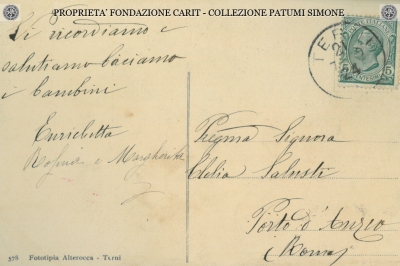 PROPRIETA' FONDAZIONE CARIT - COLLEZIONE PATUMI SIMONE
Vi ricordiamo e
salutiamo baciamo
i bambini
Enrichetta
e Margherita
Pregma Signora
Clelia Salusti
Porto d'Anzio
(Roma)
TERNI
578 Fototipia Alterocca - Terni